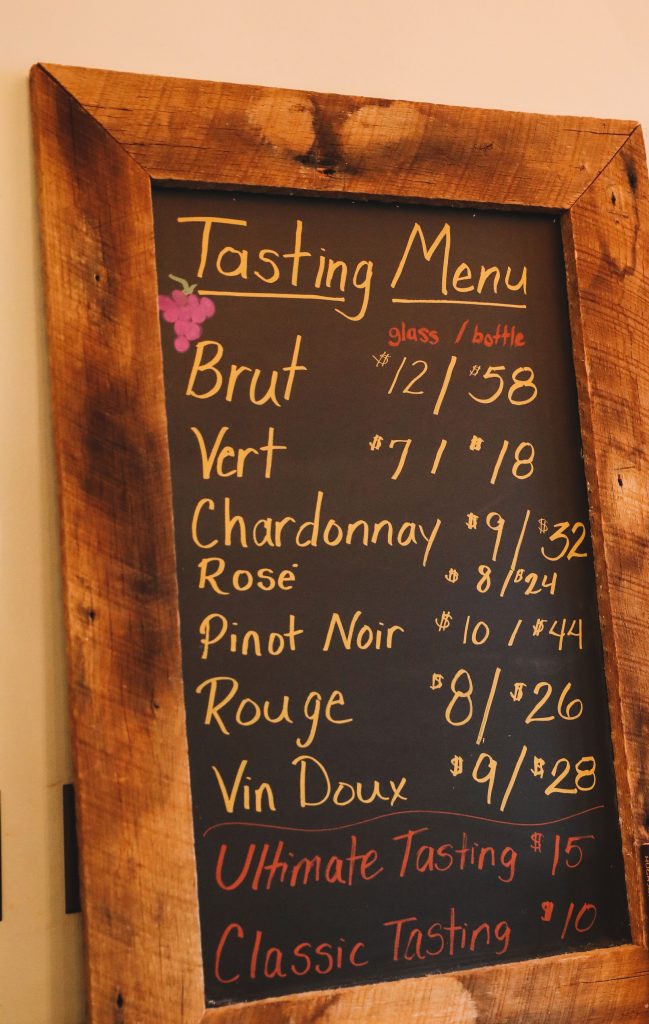 Tasting Menu
glass / bottle
Brut $12 / $58
Vert $7 / $18
Chardonnay $9 / $32
Rosé $8 / $24
Pinot Noir $10 / $44
Rouge $8 / $26
Vin Doux $9 / $28
Ultimate Tasting $15
Classic Tasting $10